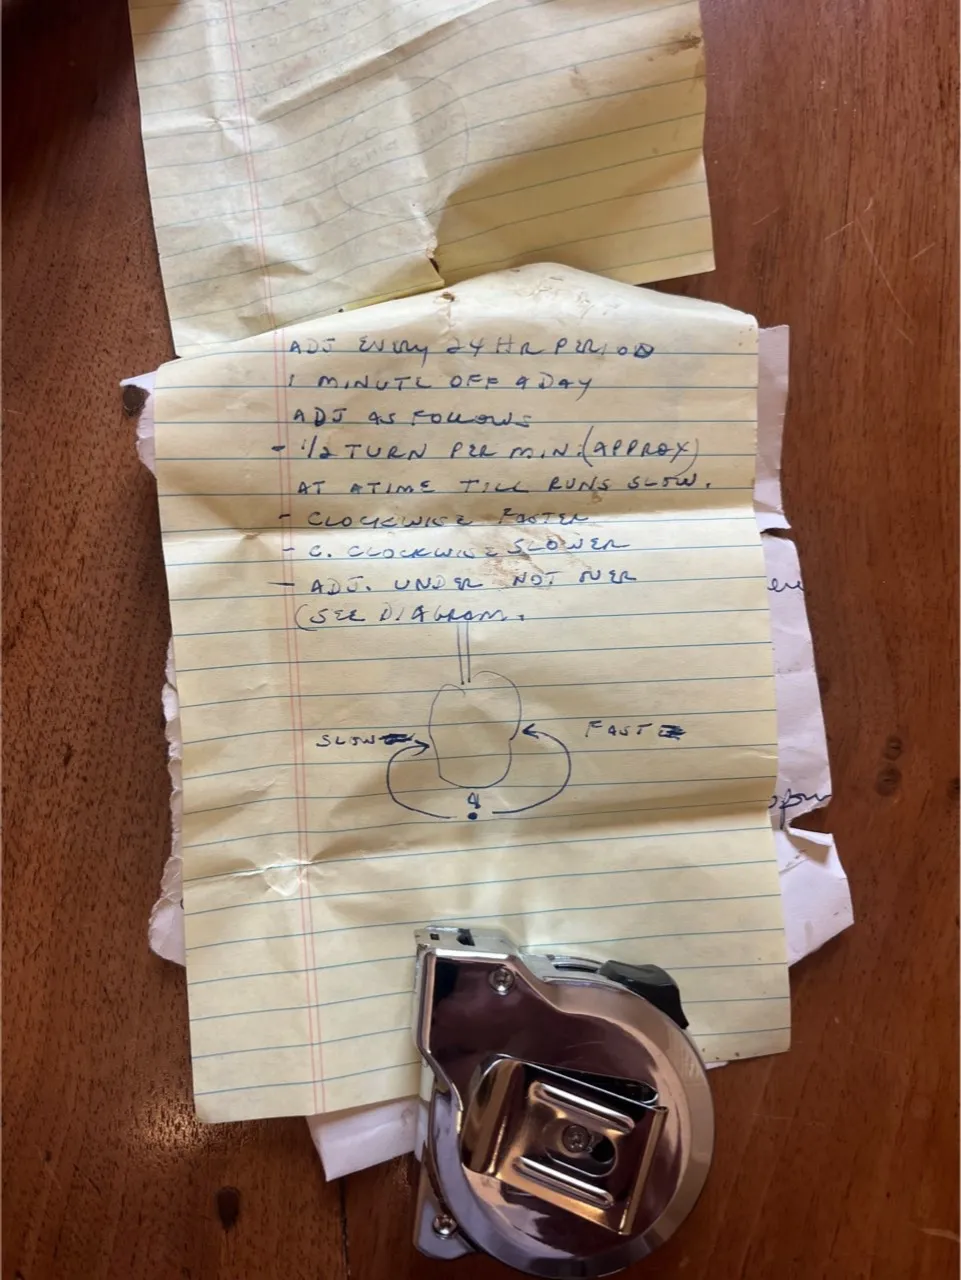 ADJ EVERY 24 HR PERIOD
1 MINUTE OFF A DAY
ADJ AS FOLLOWS
- 1/2 TURN PER MIN. (APPROX)
AT ATIME TILL RUNS SLOW.
- CLOCKWISE FASTER
- C. CLOCKWISE SLOWER
- ADJ. UNDER NOT OVER
(SEE DIAGRAM.
SLOW FAST